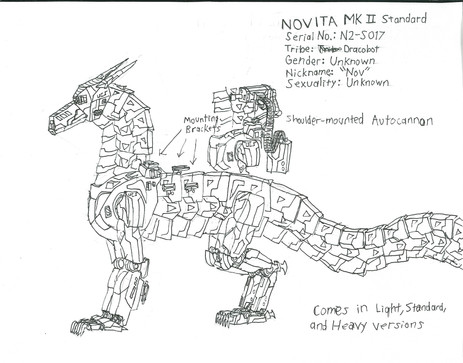 NOVITA MK II Standard
Serial No.: N2-S017
Tribe: Dracobot
Gender: Unknown
Nickname: "Nov"
Sexuality: Unknown
Mounting
Brackets
Shoulder-mounted Autocannon
Comes in Light, Standard,
and Heavy versions